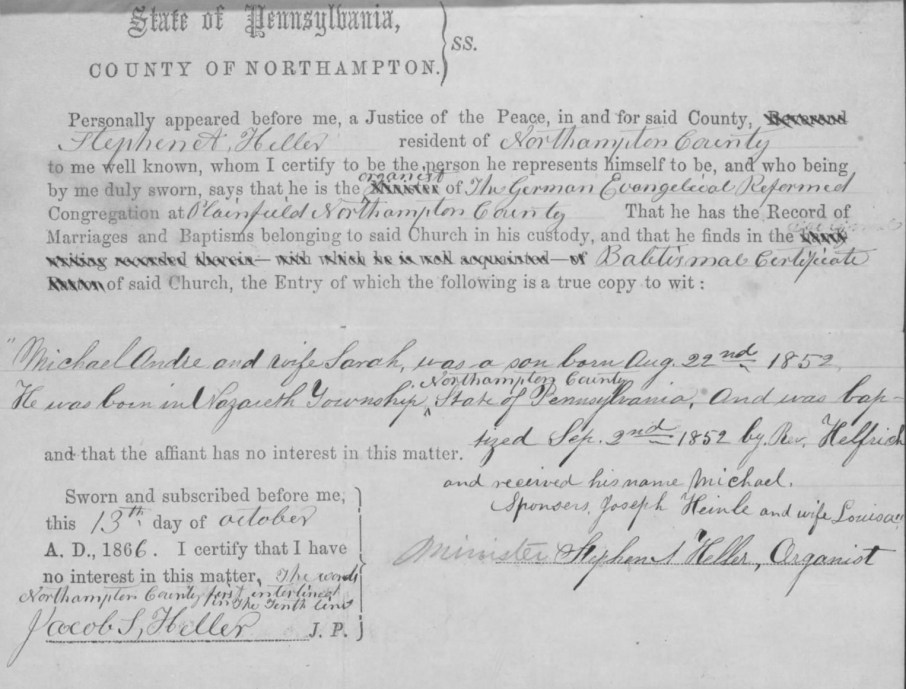 State of Pennsylvania,
COUNTY OF NORTHAMPTON. } SS.
Personally appeared before me, a Justice of the Peace, in and for said County, Reverend
Stephen A. Heller resident of Northampton County
to me well known, whom I certify to be the person he represents himself to be, and who being
organist
by me duly sworn, says that he is the Minister of The German Evangelical Reformed
Congregation at Plainfield Northampton County That he has the Record of
Marriages and Baptisms belonging to said Church in his custody, and that he finds in the
writing recorded therein—with which he is well acquainted—of Babtismal Certificate
of said Church, the Entry of which the following is a true copy to wit:
"Michael Andre and wife Sarah, was a son born Aug. 22nd 1852
Northampton County
He was born in Nazareth Township, ‸ State of Pennsylvania, And was bap-
tized Sep. 2nd 1852 by Rev. Helfrich
and that the affiant has no interest in this matter.
and received his name Michael.
Sponsers, Joseph Heinle and wife Louisa"
Sworn and subscribed before me,
this 13th day of october
A. D., 1866. I certify that I have
no interest in this matter, The words
Northampton County first interlined
in The Tenth line
Jacob S, Heller J. P.
Minister Stephen A Heller, Organist